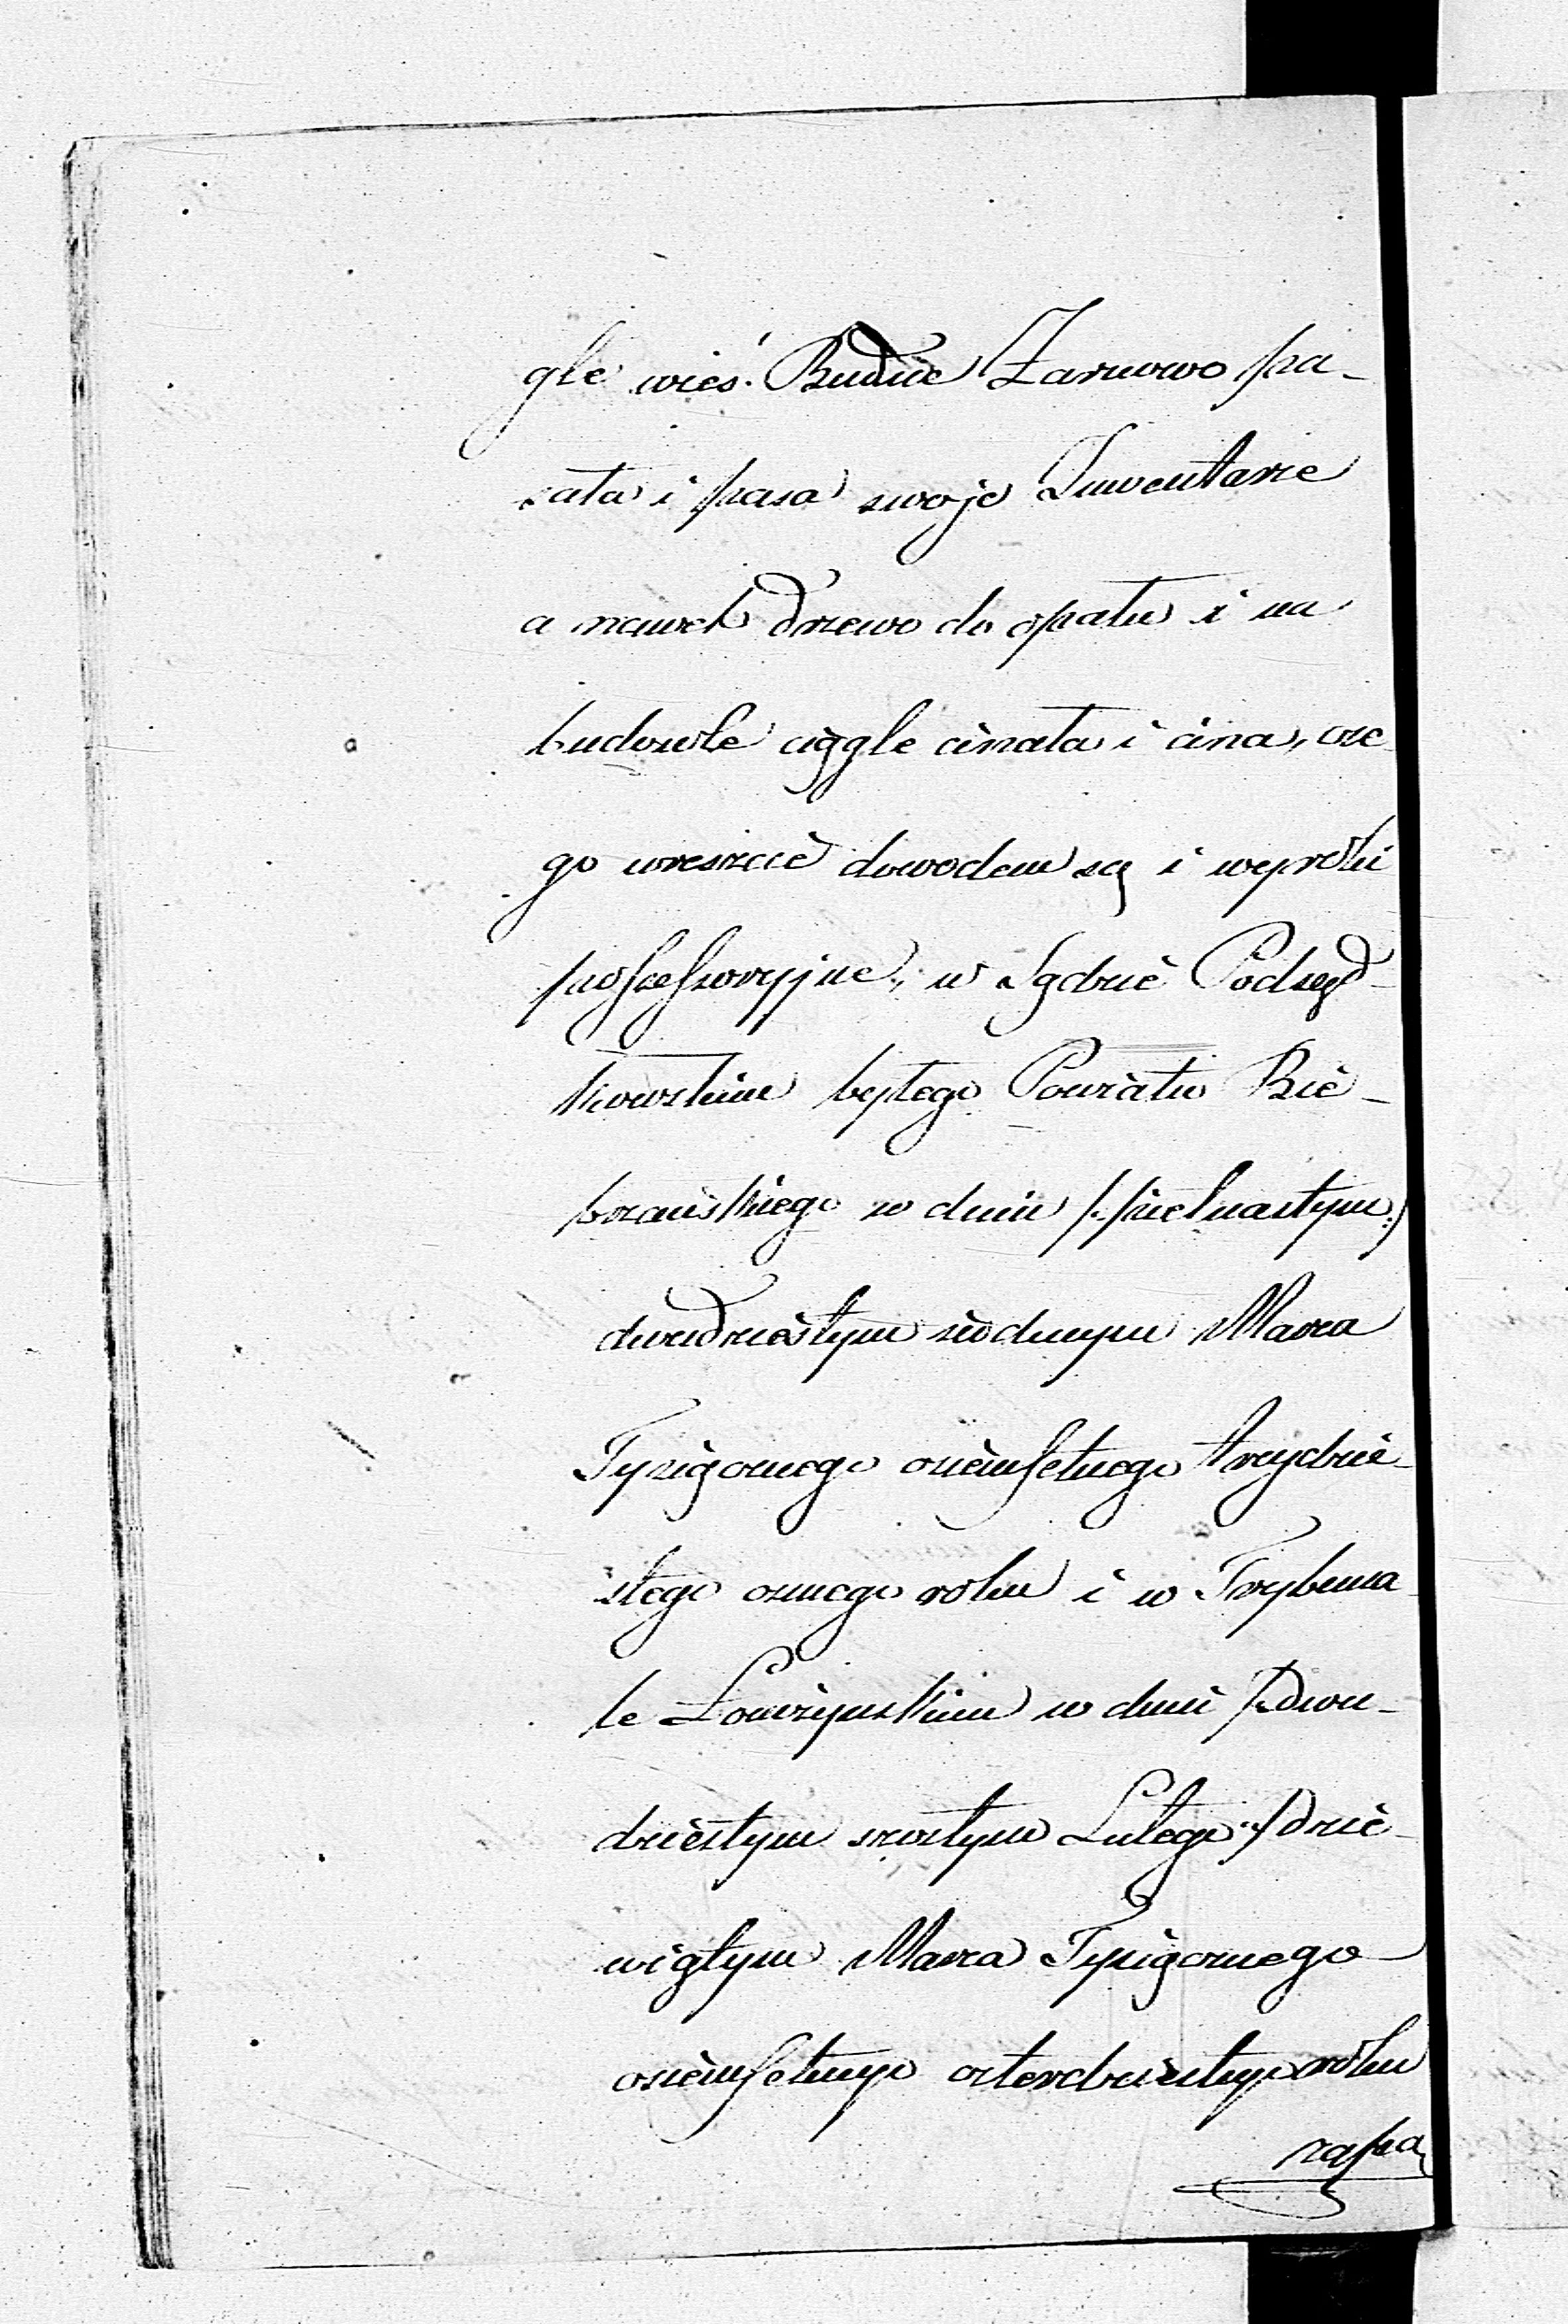 gle wieś Budne Żarnowo pa-
sała i pasa swoje Inwentarze
a nawet drzewo do opału i na
budowle ciągle cinała i cina, cze
go wreszcie dowodem są i wyroki
possessoryjne, w Sądzie Podsęd-
kowskim byłego Powiatu Bie-
brzańskiego w dniu /: piętnastym :/
dwudziestym siodmym Marca
Tysiącznego osiemsetnego trzydzie-
stego osmego roku i w Trybuna-
le Łomżyńskim w dniu /: dwu-
dziestym szostym Lutego :/ dzie-
wiątym Marca Tysiącznego
osiemsetnego czterdziestego roku
zapa